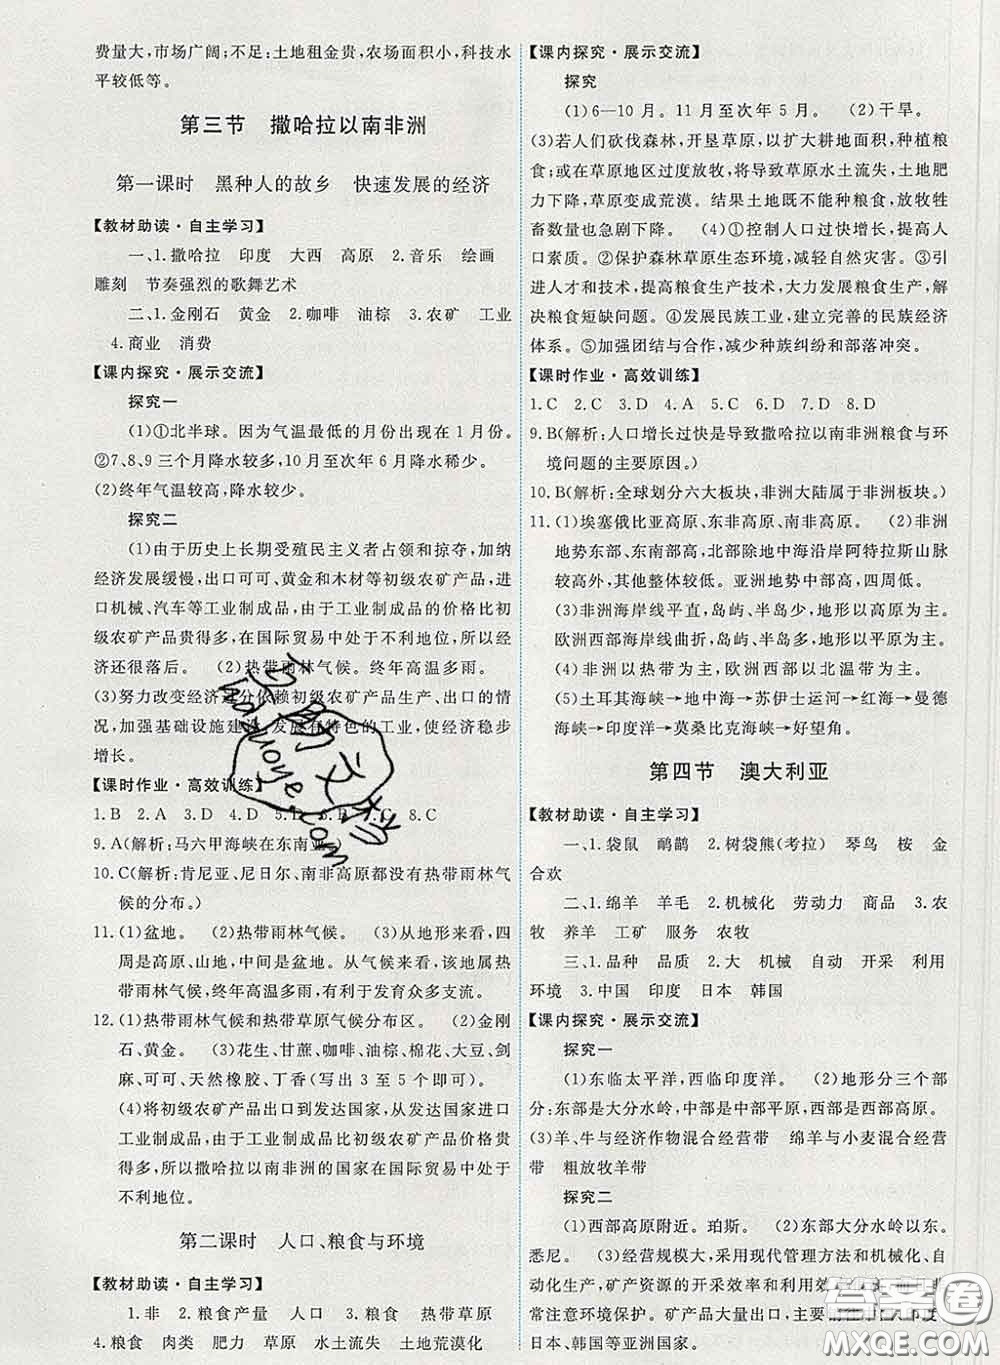 费量大,市场广阔;不足:土地租金贵,农场面积小,科技水
平较低等。
第三节 撒哈拉以南非洲
第一课时 黑种人的故乡 快速发展的经济
【教材助读·自主学习】
一、1.撒哈拉 印度 大西 高原 2.音乐 绘画
雕刻 节奏强烈的歌舞艺术
二、1.金刚石 黄金 2.咖啡 油棕 3.农矿 工业
4.商业 消费
【课内探究·展示交流】
探究一
(1)①北半球。因为气温最低的月份出现在1月份。
②7、8、9三个月降水较多,10月至次年6月降水稀少。
(2)终年气温较高,降水较少。
探究二
(1)由于历史上长期受殖民主义者占领和掠夺,加纳
经济发展缓慢,出口可可、黄金和木材等初级农矿产品,进
口机械、汽车等工业制成品,由于工业制成品的价格比初
级农矿产品贵得多,在国际贸易中处于不利地位,所以
经济还很落后。 (2)热带雨林气候。终年高温多雨。
(3)努力改变经济过分依赖初级农矿产品生产、出口的情
况,加强基础设施建设,发展有特色的工业,使经济稳步
增长。
【课时作业·高效训练】
1.B 2.A 3.D 4.D 5.D 6.B 7.C 8.C
9.A(解析:马六甲海峡在东南亚。)
10.C(解析:肯尼亚、尼日尔、南非高原都没有热带雨林气
候的分布。)
11.(1)盆地。 (2)热带雨林气候。 (3)从地形来看,四
周是高原、山地,中间是盆地。从气候来看,该地属热
带雨林气候,终年高温多雨,有利于发育众多支流。
12.(1)热带雨林气候和热带草原气候分布区。 (2)金刚
石、黄金。 (3)花生、甘蔗、咖啡、油棕、棉花、大豆、剑
麻、可可、天然橡胶、丁香(写出3至5个即可)。
(4)将初级农矿产品出口到发达国家,从发达国家进口
工业制成品,由于工业制成品比初级农矿产品价格贵
得多,所以撒哈拉以南非洲的国家在国际贸易中处于
不利地位。
第二课时 人口、粮食与环境
【教材助读·自主学习】
1.非 2.粮食产量 人口 3.粮食 热带草原
4.粮食 肉类 肥力 草原 水土流失 土地荒漠化
【课内探究·展示交流】
探究
(1)6—10月。11月至次年5月。 (2)干旱。
(3)若人们砍伐森林,开垦草原,以扩大耕地面积,种植粮
食;或在草原地区过度放牧,将导致草原水土流失,土地肥
力下降,草原变成荒漠。结果土地既不能种粮食,放牧牲
畜数量也急剧下降。 (4)①控制人口过快增长,提高人
口素质。②保护森林草原生态环境,减轻自然灾害。③引
进人才和技术,提高粮食生产技术,大力发展粮食生产,解
决粮食短缺问题。④发展民族工业,建立完善的民族经济
体系。⑤加强团结与合作,减少种族纠纷和部族冲突。
【课时作业·高效训练】
1.C 2.C 3.D 4.A 5.C 6.D 7.D 8.D
9.B(解析:人口增长过快是导致撒哈拉以南非洲粮食与环
境问题的主要原因。)
10.B(解析:全球划分六大板块,非洲大陆属于非洲板块。)
11.(1)埃塞俄比亚高原、东非高原、南非高原。 (2)非洲
地势东部、东南部高,北部除地中海沿岸阿特拉斯山脉
较高外,其他大部较低。亚洲地势中部高,四周低。
(3)非洲海岸线平直,岛屿、半岛少,地形以高原为主。
欧洲西部海岸线曲折,岛屿、半岛多,地形以平原为主。
(4)非洲以热带为主,欧洲西部以北温带为主。
(5)土耳其海峡→地中海→苏伊士运河→红海→曼德
海峡→印度洋→莫桑比克海峡→好望角。
第四节 澳大利亚
【教材助读·自主学习】
一、1.袋鼠 鸸鹋 2.树袋熊(考拉) 琴鸟 桉 金
合欢
二、1.绵羊 羊毛 2.机械化 劳动力 商品 3.农
牧 养羊 工矿 服务 农牧
三、1.品种 品质 2.大 机械 自动 开采 利用
环境 3.中国 印度 日本 韩国
【课内探究·展示交流】
探究一
(1)东临太平洋,西临印度洋。 (2)地形分三个部
分:东部是大分水岭,中部是中部平原,西部是西部高原。
(3)羊、牛与经济作物混合经营带 绵羊与小麦混合经营
带 粗放牧羊带
探究二
(1)西部高原附近。珀斯。 (2)东部大分水岭以东。
悉尼。 (3)经营规模大,采用现代管理方法和机械化、自
动化生产,矿产资源的开采效率和利用效
常注意环境保护。矿产品大量出口,主要
日本、韩国等亚洲国家。
答案圈
MXQE.COM